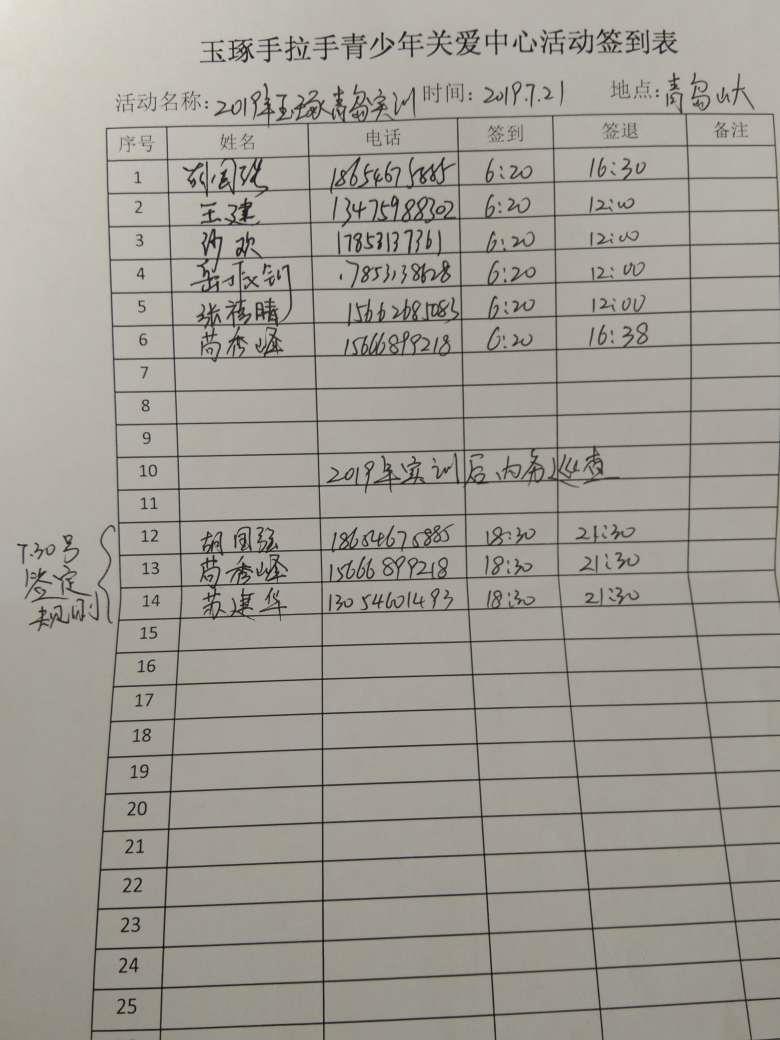 玉琢手拉手青少年关爱中心活动签到表
活动名称：2019年玉琢青岛实训 时间：2019.7.21 地点：青岛山大
序号 姓名 电话 签到 签退 备注
1 胡国强 18654675885 6:20 16:30
2 王建 13475988302 6:20 12:00
3 沙欢 17853137361 6:20 12:00
4 岳 17853138628 6:20 12:00
5 张禧晴 15662685083 6:20 12:00
6 苘秀峰 15666899218 6:20 16:38
7
8
9
10 2019年实训后内务巡查
11
12 胡国强 18654675885 18:30 21:30
7.30号
13 苘秀峰 15666899218 18:30 21:30
鉴定
14 苏建华 13054601493 18:30 21:30
规则
15
16
17
18
19
20
21
22
23
24
25